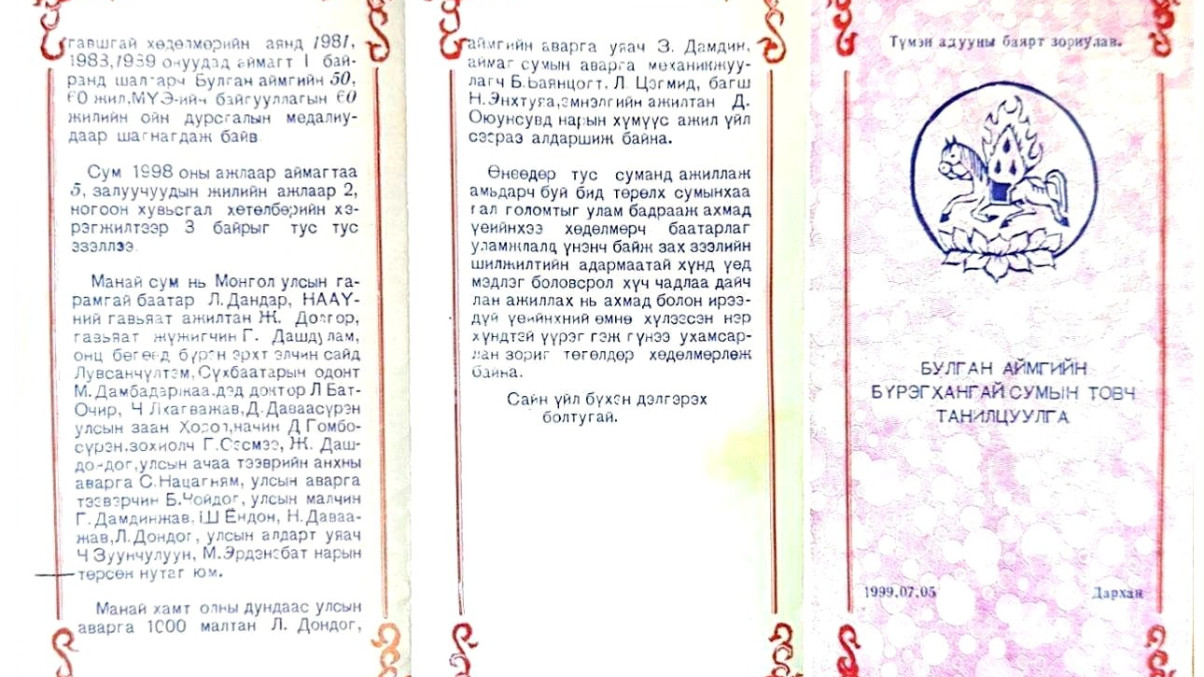 гавшгай хөдөлмөрийн аянд 1981,
1983,1989 онуудад аймагт 1 бай-
ранд шалгарч Булган аймгийн 50,
60 жил,МҮЭ-ийн байгууллагын 60
жилийн ойн дурсгалын медалиу-
даар шагнагдаж байв
Сум 1998 оны ажлаар аймагтаа
5, залуучуудын жилийн ажлаар 2,
ногоон хувьсгал хөтөлбөрийн хэ-
рэгжилтээр 3 байрыг тус тус
эзэллээ.
Манай сум нь Монгол улсын га-
рамгай баатар Л.Дандар, НААҮ-
ний гавьяат ажилтан Ж. Долгор,
гавьяат жүжигчин Г. Дашдулам,
онц бөгөөд бүрэн эрхт элчин сайд
Лувсанчүлтэм,Сүхбаатарын одонт
М.Дамбадаржаа.дэд доктор Л Бат-
Очир, Ч Лхагважав,Д.Даваасүрэн
улсын заан Хорол,начин Д Гомбо-
сүрэн,зохиолч Г.Сэсмээ, Ж. Даш-
дондог,улсын ачаа тээврийн анхны
аварга С.Нацагням, улсын аварга
тээвэрчин Б.Чойдог, улсын малчин
Г.Дамдинжав, Ш Ёндон, Н.Даваа-
жав,Л.Дондог, улсын алдарт уяач
Ч Зуунчулуун, М.Эрдэнэбат нарын
төрсөн нутаг юм.
Манай хамт олны дундаас улсын
аварга 1000 малтан Л. Дондог,
аймгийн аварга уяач З. Дамдин,
аймаг сумын аварга механикжуу-
лагч Б.Баянцогт, Л. Цэгмид, багш
Н.Энхтуяа,эмнэлгийн ажилтан Д.
Оюунсувд нарын хүмүүс ажил үйл
сээрээ алдаршиж байна.
Өнөөдөр тус суманд ажиллаж
амьдарч буй бид төрөлх сумынхаа
гал голомтыг улам бадрааж ахмад
үеийнхээ хөдөлмөрч баатарлаг
уламжлалд үнэнч байж зах зээлийн
шилжилтийн адармаатай хүнд үед
мэдлэг боловсрол хүч чадлаа дайч
лан ажиллах нь ахмад болон ирээ-
дүй үеийнхний өмнө хүлээсэн нэр
хүндтэй үүрэг гэж гүнээ ухамсар-
лан зориг төгөлдөр хөдөлмөрлөж
байна.
Сайн үйл бүхэн дэлгэрэх
болтугай.
Түмэн адууны баярт зориулав.
БУЛГАН АЙМГИЙН
БҮРЭГХАНГАЙ СУМЫН ТОВЧ
ТАНИЛЦУУЛГА
1999.07.05 Дархан